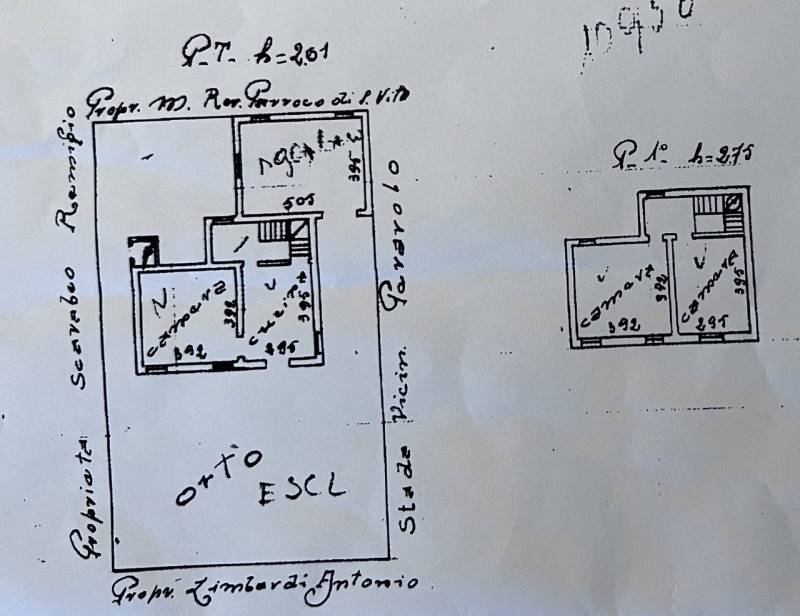 P.T. h=2.01
Propr. M. Rev. Parroco di S. Vito
Proprietà Scarabeo Remigio
395
505
Strada Vicin. Pararolo
camera
392
392
cucina
395
295
Orto
ESCL
Propr. Limbardi Antonio.
P. 1° h=2.75
camera
392
392
camera
395
295